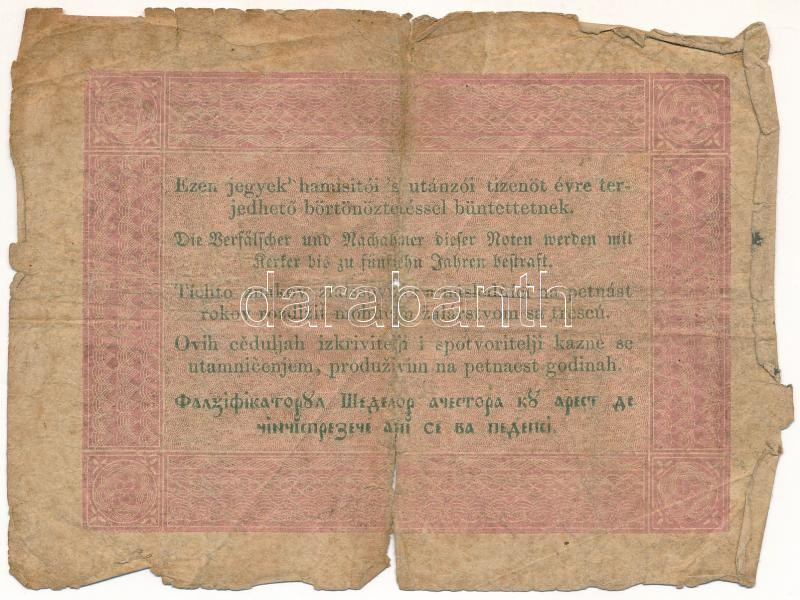 Ezen jegyek' hamisitói 's utánzói tizenöt évre ter-
jedhető börtönöztetéssel büntettetnek.
Die Verfälscher und Nachahmer dieser Noten werden mit
Kerker bis zu fünfzehn Jahren bestraft.
Tichto na petnást
rokov žalárstvom sa trescú.
darabanth
Ovih cěduljah izkrivitelji i spotvoritelji kazne se
utamničenjem, produživim na petnaest godinah.
Фалзіфікаторꙋл Шеделор ачестора кꙋ арест де
чінчіспрезече ані се ва педепсі.